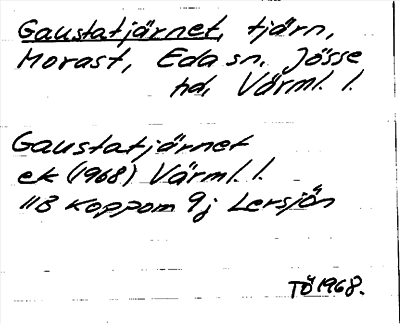 Gaustatjärnet, tjärn,
Morast, Eda sn, Jösse
hd, Värml. l.
Gaustatjärnet
ek (1968) Värml. l.
11B Koppom 9j Lersjön
TÖ 1968.